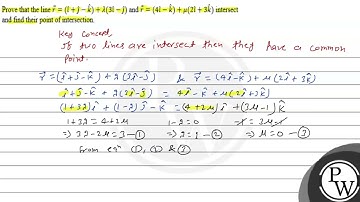 Prove that the line r⃗ = (î + ĵ − k̂) + λ(3î − ĵ) and r⃗ = (4î − k̂) + μ(2î + 3k̂) intersect
and find their point of intersection.
Key Concept,
If two lines are intersect then they have a common
point.
r⃗ = (î+ĵ−k̂) + λ(3î−ĵ) & r⃗ = (4î−k̂) + μ(2î+3k̂)
î+ĵ−k̂ + λ(3î−ĵ) = 4î−k̂ + μ(2î+3k̂)
(1+3λ)î + (1−λ)ĵ − k̂ = (4+2μ)î + (3μ−1)k̂
1+3λ = 4+2μ 1−λ=0 −1 = 3μ−1
⇒ 3λ−2μ=3 −① ⇒ λ=1 −② ⇒ μ=0 −③
from eqⁿ ①, ② & ③
PW